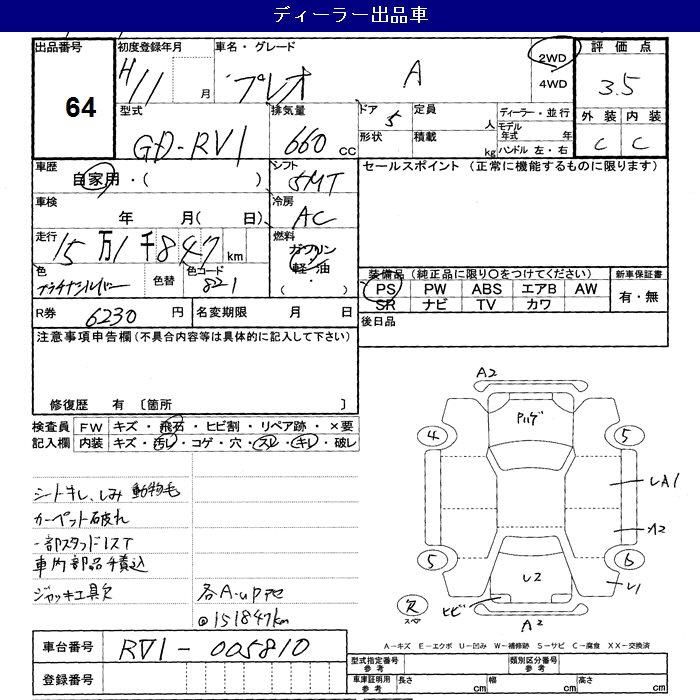 ディーラー出品車
出品番号 初度登録年月 車名・グレード 2WD 評価点
64 H11 月 プレオ A 4WD 3.5
型式 排気量 ドア 5 定員 人 ディーラー・並行 外装 内装
GD-RV1 660 CC 形状 積載 kg モデル年式 年 C C
ハンドル 左・右
車歴 シフト セールスポイント (正常に機能するものに限ります)
自家用・( ) 5MT
車検 年 月( 日) 冷房 AC
走行 15万1千847 km 燃料 ガソリン
軽・油
( ・ )
色 色替 色コード 821
装備品 (純正品に限り○をつけてください) 新車保証書
PS PW ABS エアB AW 有・無
SR ナビ TV カワ
R券 6230 円 名変期限 月 日 後日品
注意事項申告欄(不具合内容等は具体的に記入して下さい)
修復歴 有 〔箇所 〕
検査員 FW キズ・飛石・ヒビ割・リペア跡・×要
記入欄 内装 キズ・汚レ・コゲ・穴・スレ・キレ・破レ
シートキレ、しみ 動物毛
カーペット破れ
車内部品積込
ジャッキ工具欠
各A-UP
@151847km
A2
4
5
LA1
A2
5
6
U2
L1
欠
スペ
ヒビ
A2
A-キズ E-エクボ U-凹み W-補修跡 S-サビ C-腐食 XX-交換済
車台番号 RV1-005810
型式指定番号 参考 類別区分番号 参考
登録番号 車庫証明用 参考 長さ cm 幅 cm 高さ cm